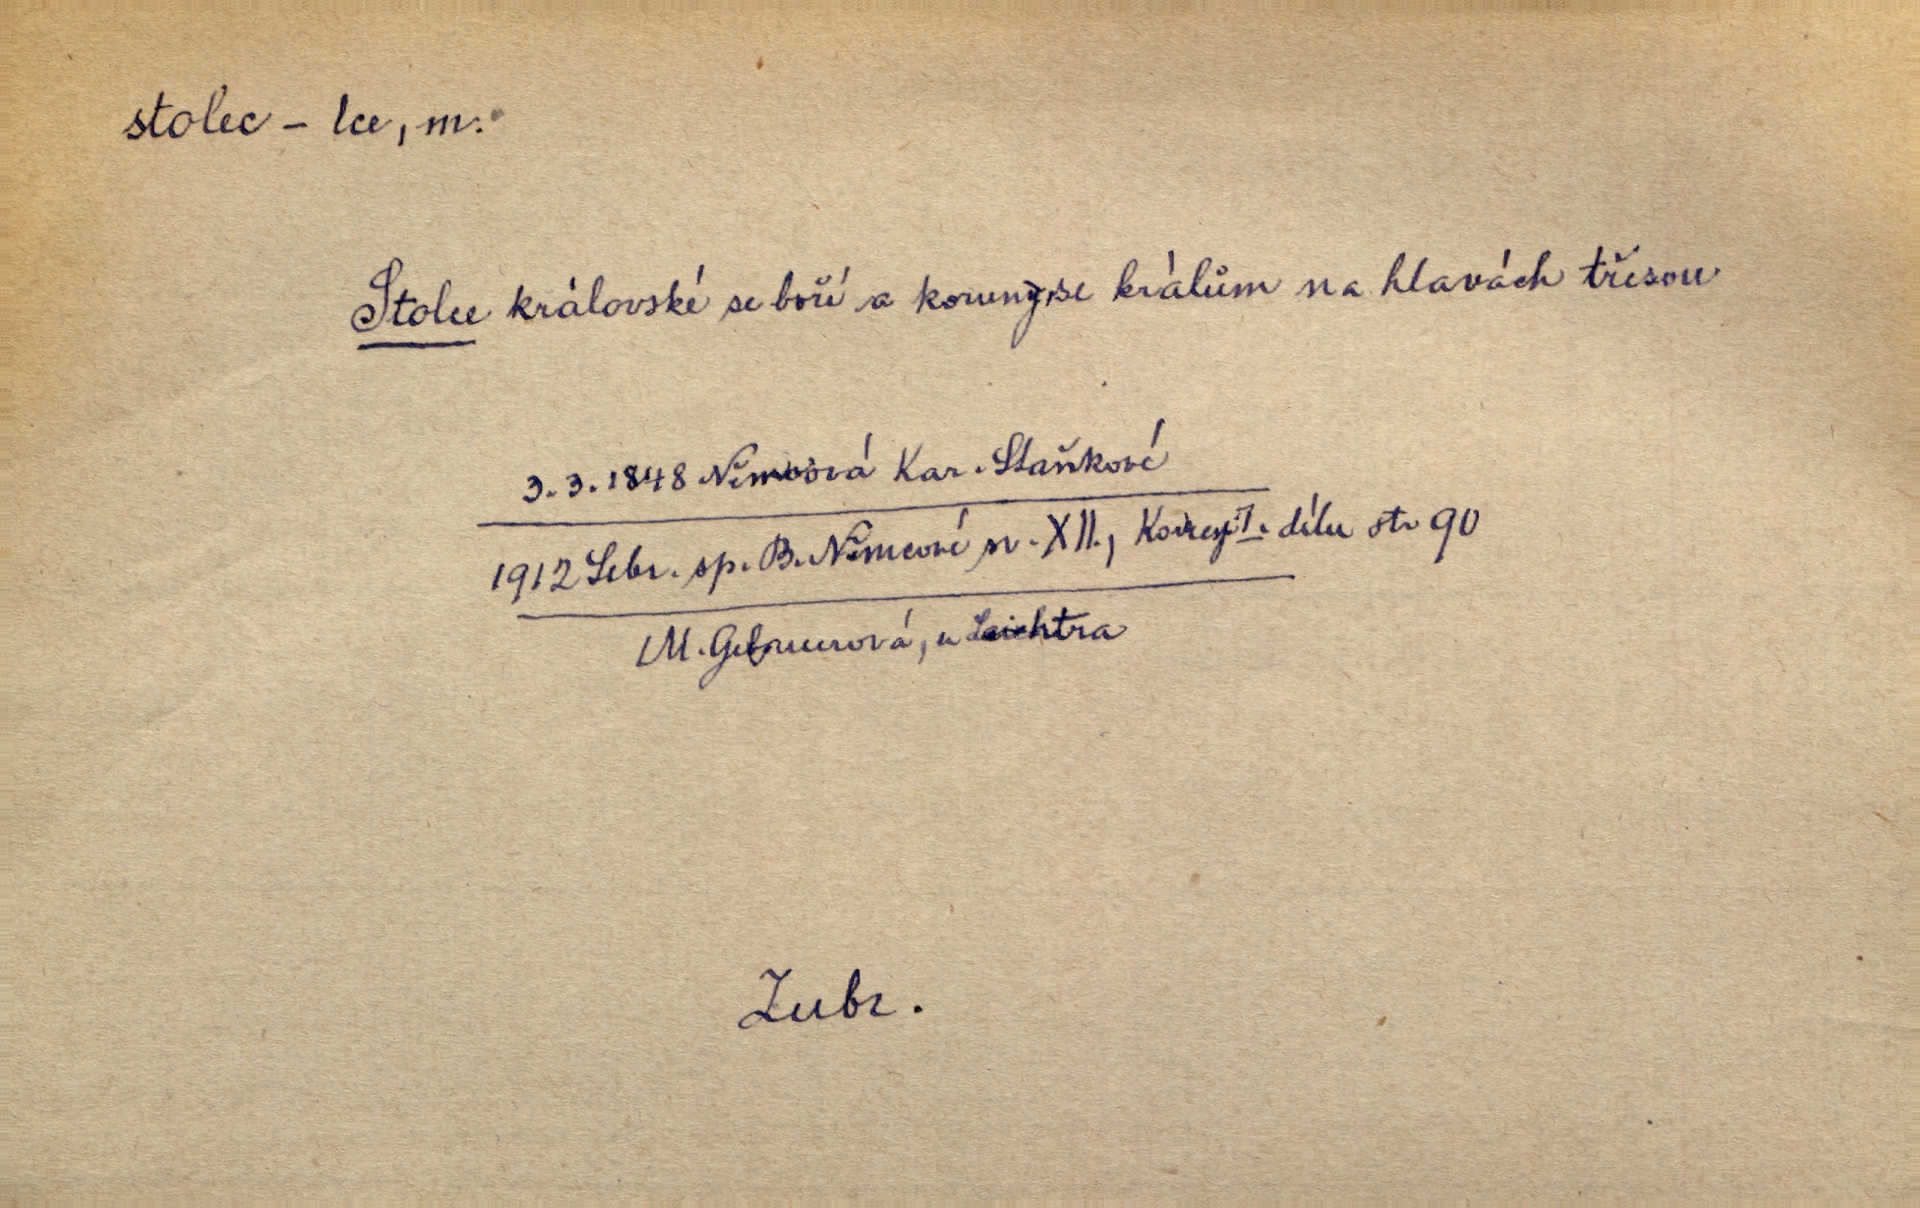 stolec – lce, m.
Stolce královské se boří a koruny se králům na hlavách třesou
3. 3. 1848 Němcová Kar. Staňkové
1912 Sebr. sp. B. Němcové sv. XII., Koresp. I. dílu str 90
M. Gebauerová, u Laichtra
Zubr.